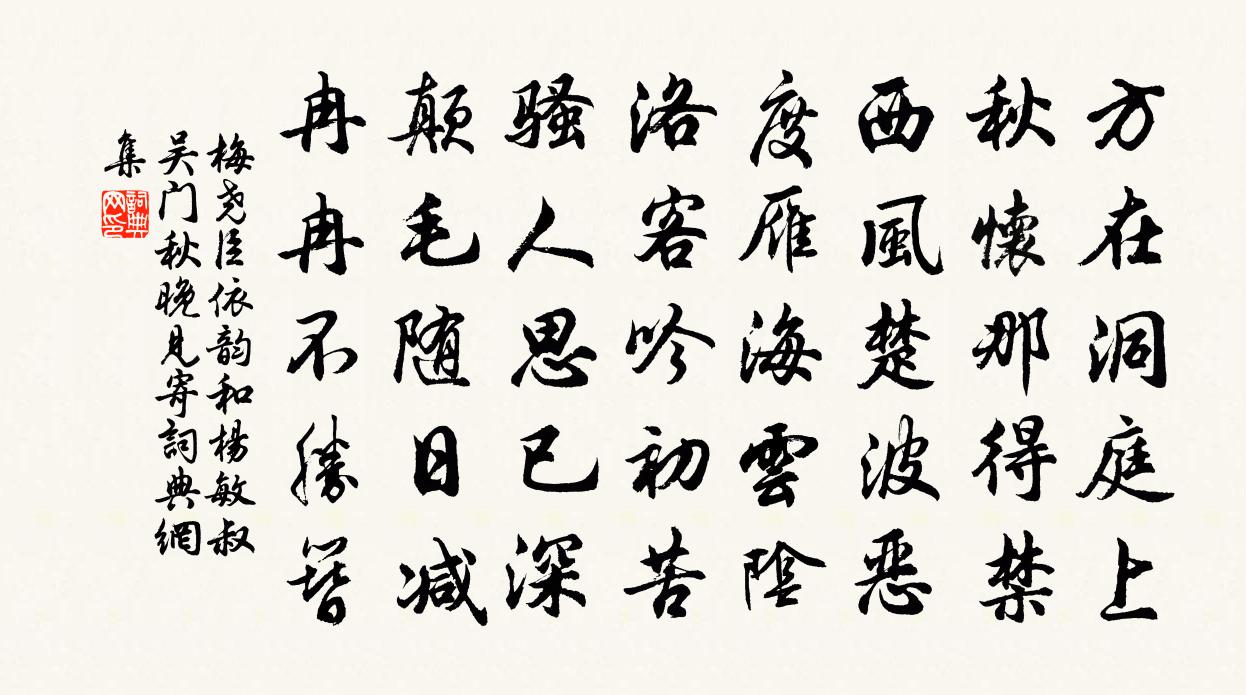 方在洞庭上
秋懷那得禁
西風楚波惡
度雁海雲陰
洛客吟初苦
騷人思已深
颠毛随日减
冉冉不勝簪
梅堯臣依韵和楊敏叔
吴门秋晚見寄詞典網
集
詞典
网印